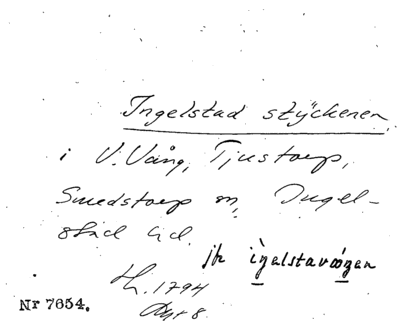 Ingelstad stÿckenen
i V. Vång, Tjustorp,
Smedstorp m, Ingel-
stad hd.
jfr ìŋelstavǫ́gen
Lh. 1794
Nr 7654.